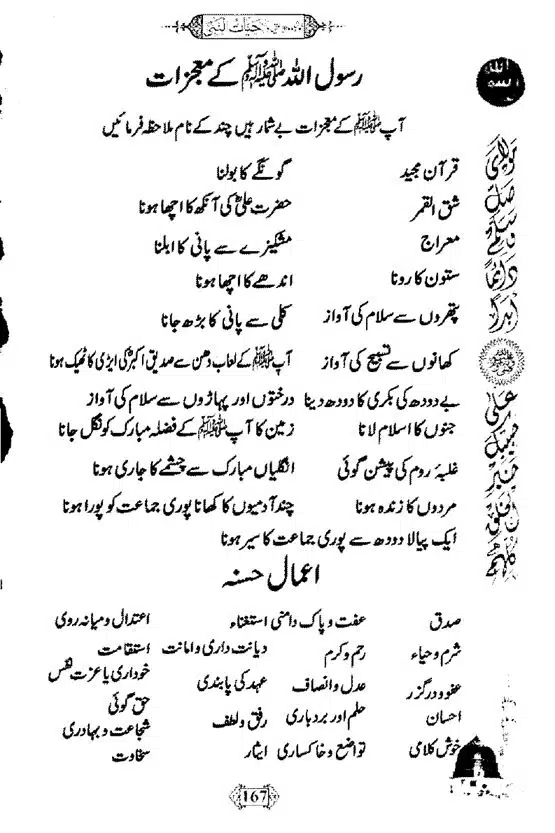 حیات النبی
رسول اللہ ﷺ کے معجزات
آپ ﷺ کے معجزات بے شمار ہیں چند کے نام ملاحظہ فرمائیں
قرآن مجید گونگے کا بولنا
شق القمر حضرت علیؓ کی آنکھ کا اچھا ہونا
معراج مشکیزے سے پانی کا ابلنا
ستون کا رونا اندھے کا اچھا ہونا
پتھروں سے سلام کی آواز کلی سے پانی کا بڑھ جانا
کھانوں سے تسبیح کی آواز آپ ﷺ کے لعاب دہن سے صدیق اکبرؓ کی ایڑی کا ٹھیک ہونا
بے دودھ کی بکری کا دودھ دینا درختوں اور پہاڑوں سے سلام کی آواز
جنوں کا اسلام لانا زمین کا آپ ﷺ کے فضلہ مبارک کو نگل جانا
غلبۂ روم کی پیشن گوئی انگلیاں مبارک سے چشمے کا جاری ہونا
مردوں کا زندہ ہونا چند آدمیوں کا کھانا پوری جماعت کو پورا ہونا
ایک پیالا دودھ سے پوری جماعت کا سیر ہونا
اعمال حسنہ
صدق عفت و پاک دامنی استغناء اعتدال و میانہ روی
شرم و حیاء رحم و کرم دیانت داری و امانت استقامت
عفو و درگزر عدل و انصاف عہد کی پابندی خودداری یا عزت نفس
احسان حلم اور بردباری رفق و لطف حق گوئی
خوش کلامی تواضع و خاکساری ایثار شجاعت و بہادری
سخاوت
167
مولای
صل
وسلم
دائما
ابدا
علی
حبیبک
خیر
الخلق
کلهم